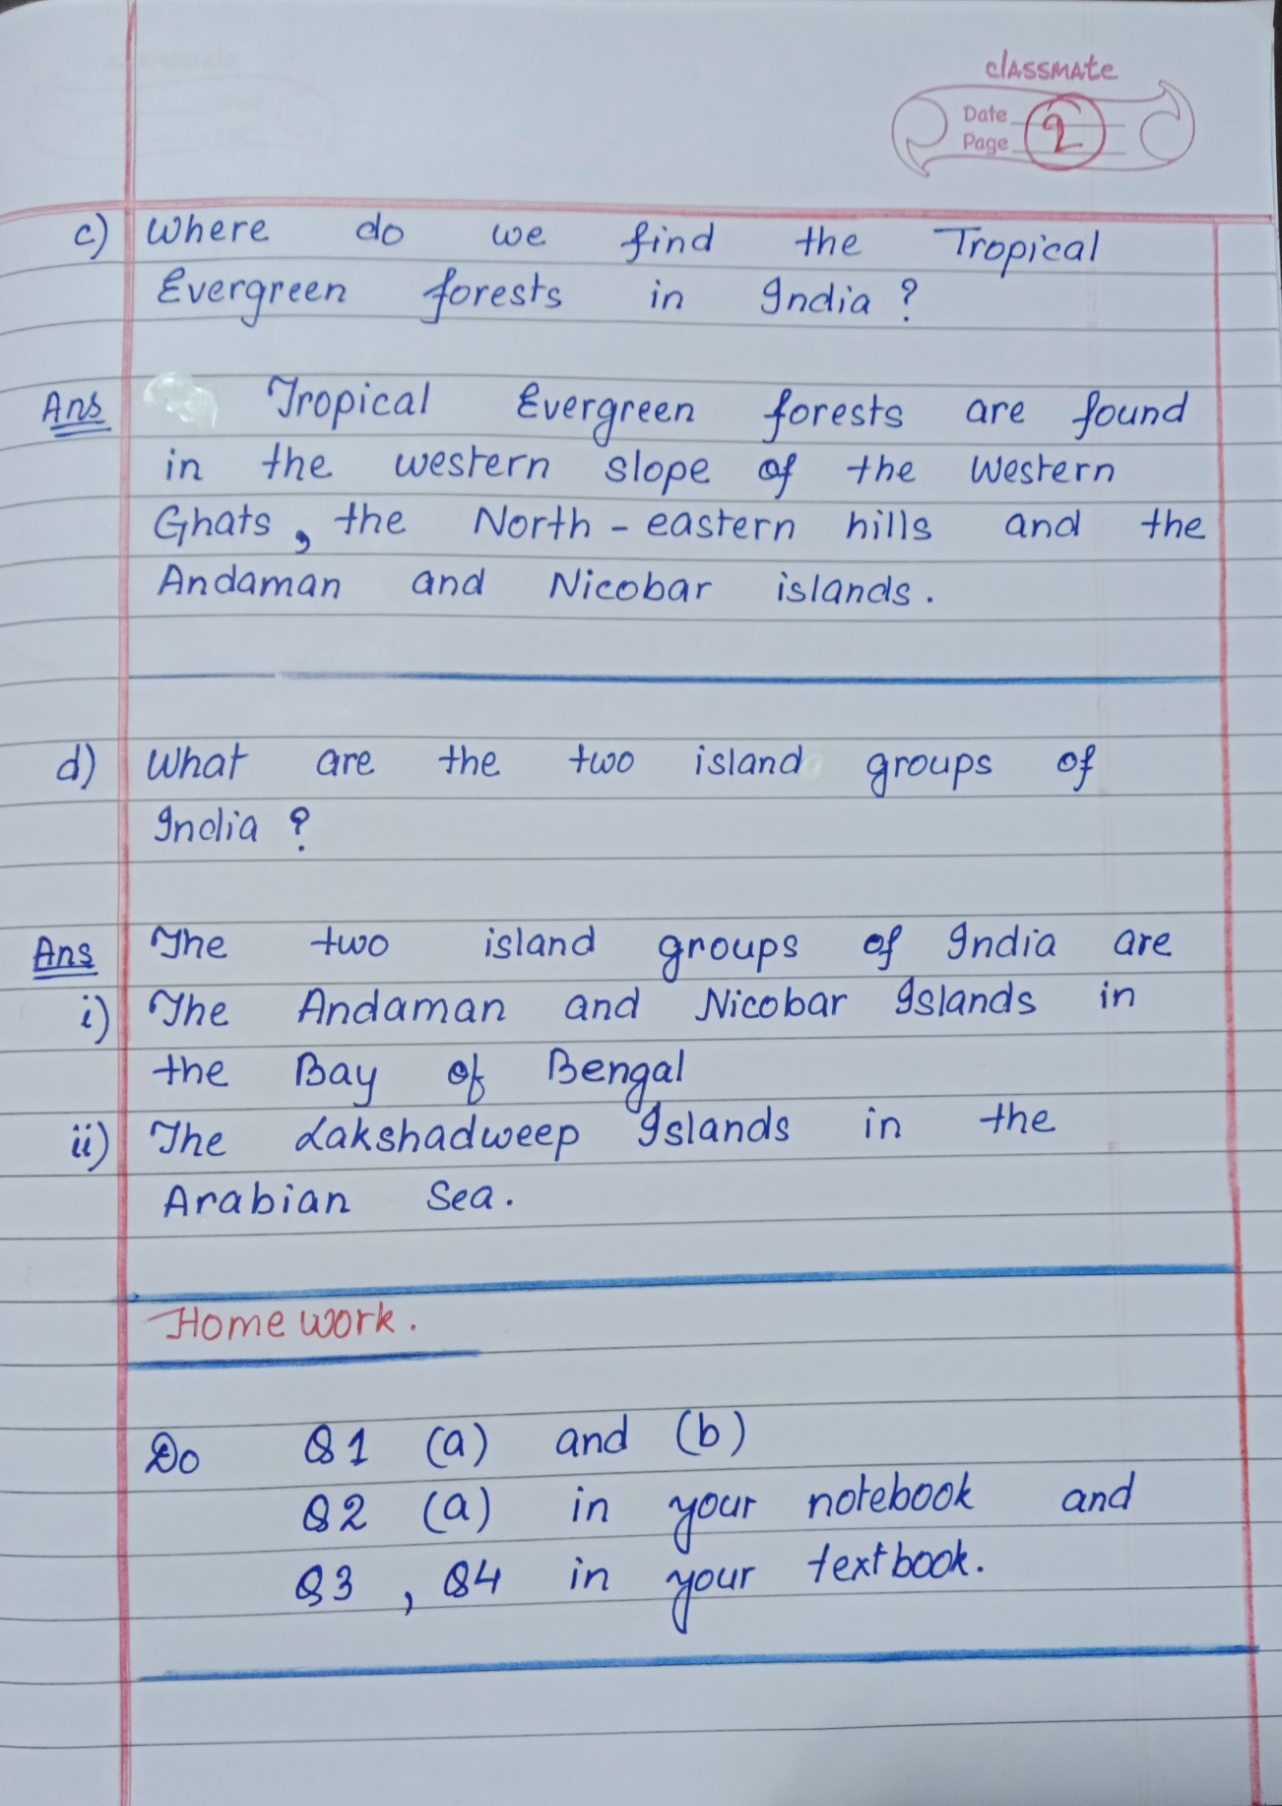 classmate
Date
Page 2
c) Where do we find the Tropical
Evergreen forests in India ?
Ans Tropical Evergreen forests are found
in the western slope of the Western
Ghats, the North-eastern hills and the
Andaman and Nicobar islands.
d) What are the two island groups of
India ?
Ans The two island groups of India are
i) The Andaman and Nicobar Islands in
the Bay of Bengal
ii) The Lakshadweep Islands in the
Arabian Sea.
Home work.
Do Q1 (a) and (b)
Q2 (a) in your notebook and
Q3 , Q4 in your textbook.